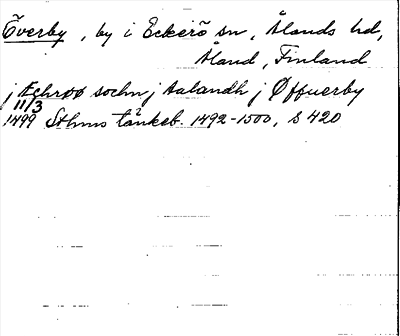 Överby, by i Eckerö sn, Ålands hd,
Åland, Finland
j Æchrøø sochn j Aalandh j Øffuerby
11/3
1499 Sthms tänkeb. 1492-1500, s 420